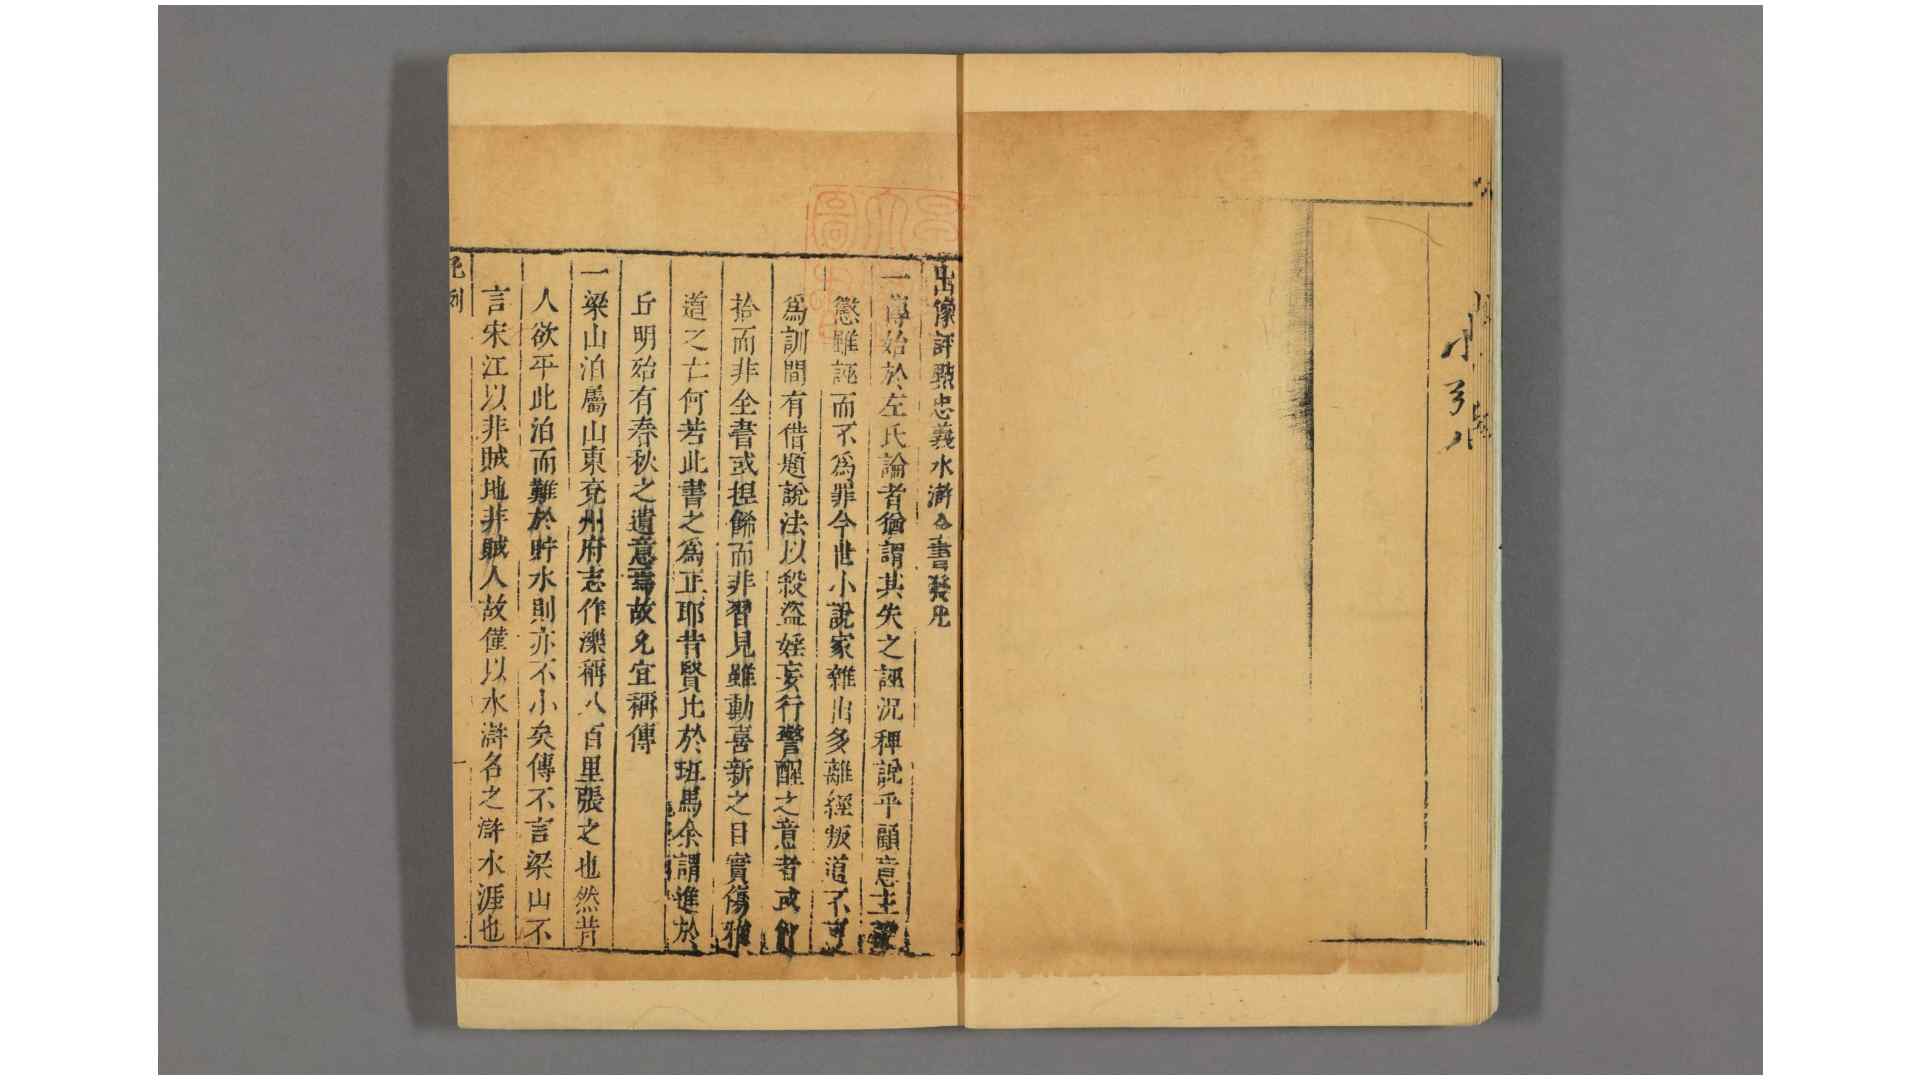 出像評點忠義水滸全書發凡
一傳始於左氏論者猶謂其失之誣況稗說乎顧意主勸
懲雖誣而不爲罪今世小說家雜出多離經叛道不可
爲訓間有借題說法以殺盜婬妄行警醒之意者或飣
拾而非全書或捏飾而非習見雖動喜新之目實傷雅
道之亡何若此書之爲正耶昔賢比於班馬余謂進於
丘明殆有春秋之遺意焉故允宜稱傳
一梁山泊屬山東兗州府志作濼稱八百里張之也然昔
人欲平此泊而難於貯水則亦不小矣傳不言梁山不
言宋江以非賊地非賊人故僅以水滸名之滸水涯也